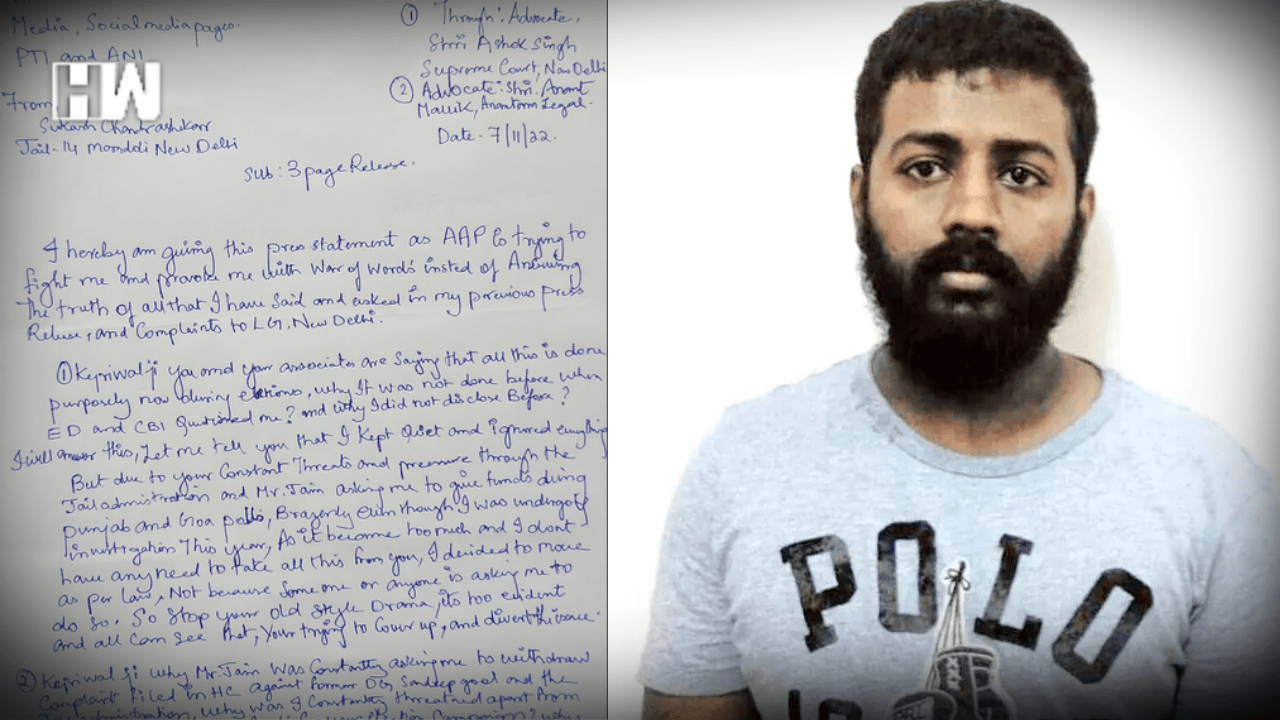 Media, Social media pages.
PTI and ANI
HW
From,
Sukash Chandrashikar
Jail-14 Mandoli New Delhi
① Through: Advocate,
Shri Ashok Singh
Supreme Court, New Delhi
② Advocate: Shri. Anant
Mallik, Anantam Legal.
Date - 7/11/22.
Sub: 3 page Release.
I hereby am giving this press statement as AAP is trying to
fight me and provoke me with War of Words insted of Answering
The truth of all that I have Said and asked in my previous press
Release, and Complaints to LG, New Delhi.
① Kejriwal ji You and your associates are Saying that all this is done
purposely now during elections, why It was not done before when
ED and CBI Questioned me? and why I did not disclose Before?
I will answer this, Let me tell you that I Kept Quiet and ignored everything
But due to your Constant Threats and pressure through the
Jail administration and Mr. Jain asking me to give funds during
punjab and Goa polls, Brazenly even though I was undergoing
investigation This year, As it became too much and I dont
have any need to take all this from you, I decided to move
as per law, Not because Someone or anyone is asking me to
do so. So Stop your old Style Drama, its too evident
and all Can See that, Your trying to Cover up, and divert the issue.
② Kejriwal Ji why Mr. Jain Was Constantly asking me to withdraw
Complaint filed in HC against former DG Sandeep goel and the
Jail administration, Why was I Constantly threatned apart from
Election Campaign? why
POLO